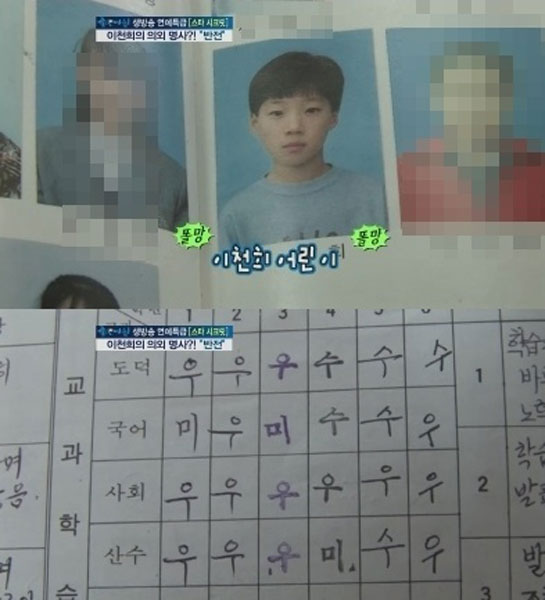 생방송 연예특급 [스타 시크릿]
이천희의 의외 명사?! "반전"
똘망
똘망
희
이천희 어린이
생방송 연예특급 [스타 시크릿]
이천희의 의외 명사?! "반전"
1 2 3 4 5 6
교과학습
도덕 우 우 우 수 수 수
국어 미 우 미 수 수 우
사회 우 우 우 우 우 우
산수 우 우 우 미 수 우
1 학습
2 학습
발표
3